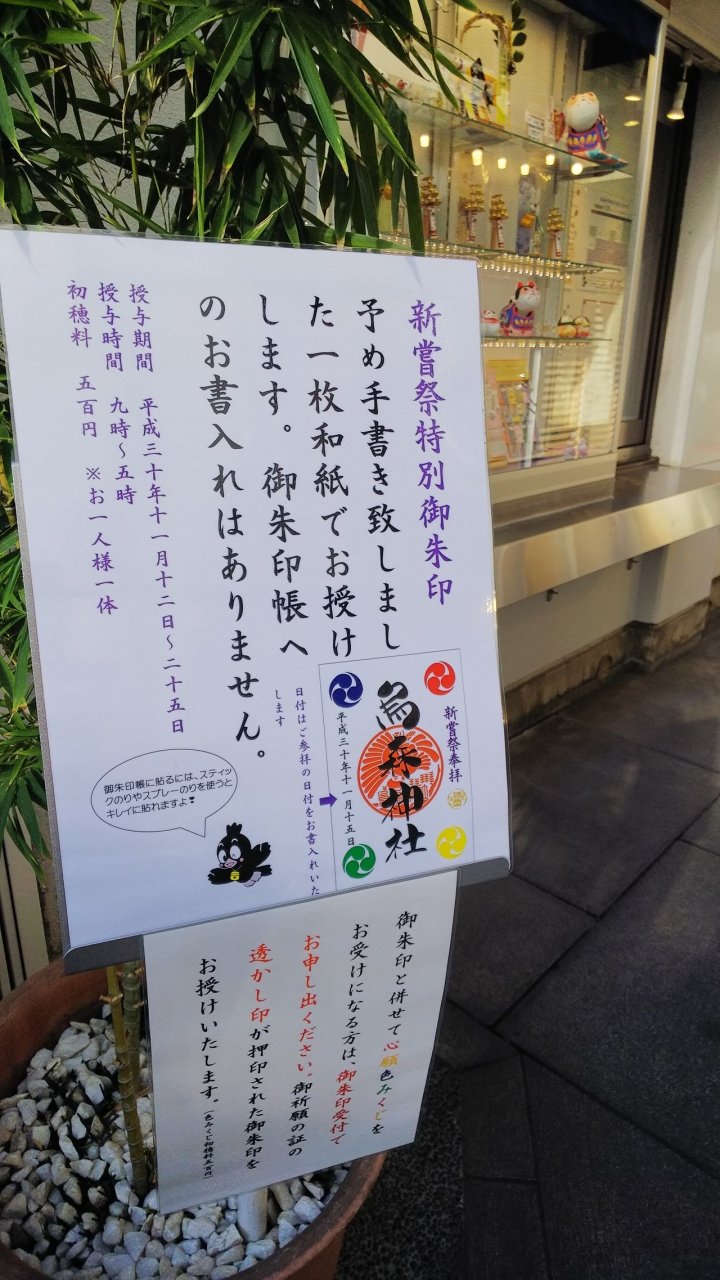 新嘗祭特別御朱印
予め手書き致しまし
た一枚和紙でお授け
します。御朱印帳へ
のお書入れはありません。
授与期間 平成三十年十一月十二日～二十五日
授与時間 九時～五時
初穂料 五百円 ※お一人様一体
新嘗祭奉拝
烏森神社
平成三十年十一月十五日
日付はご参拝の日付をお書入れいた
します
御朱印帳に貼るには、スティッ
クのりやスプレーのりを使うと
キレイに貼れますよ❣
御朱印と併せて心願色みくじを
お受けになる方は、御朱印受付で
お申し出ください。御祈願の証の
透かし印が押印された御朱印を
お授けいたします。(色みくじ初穂料五百円)